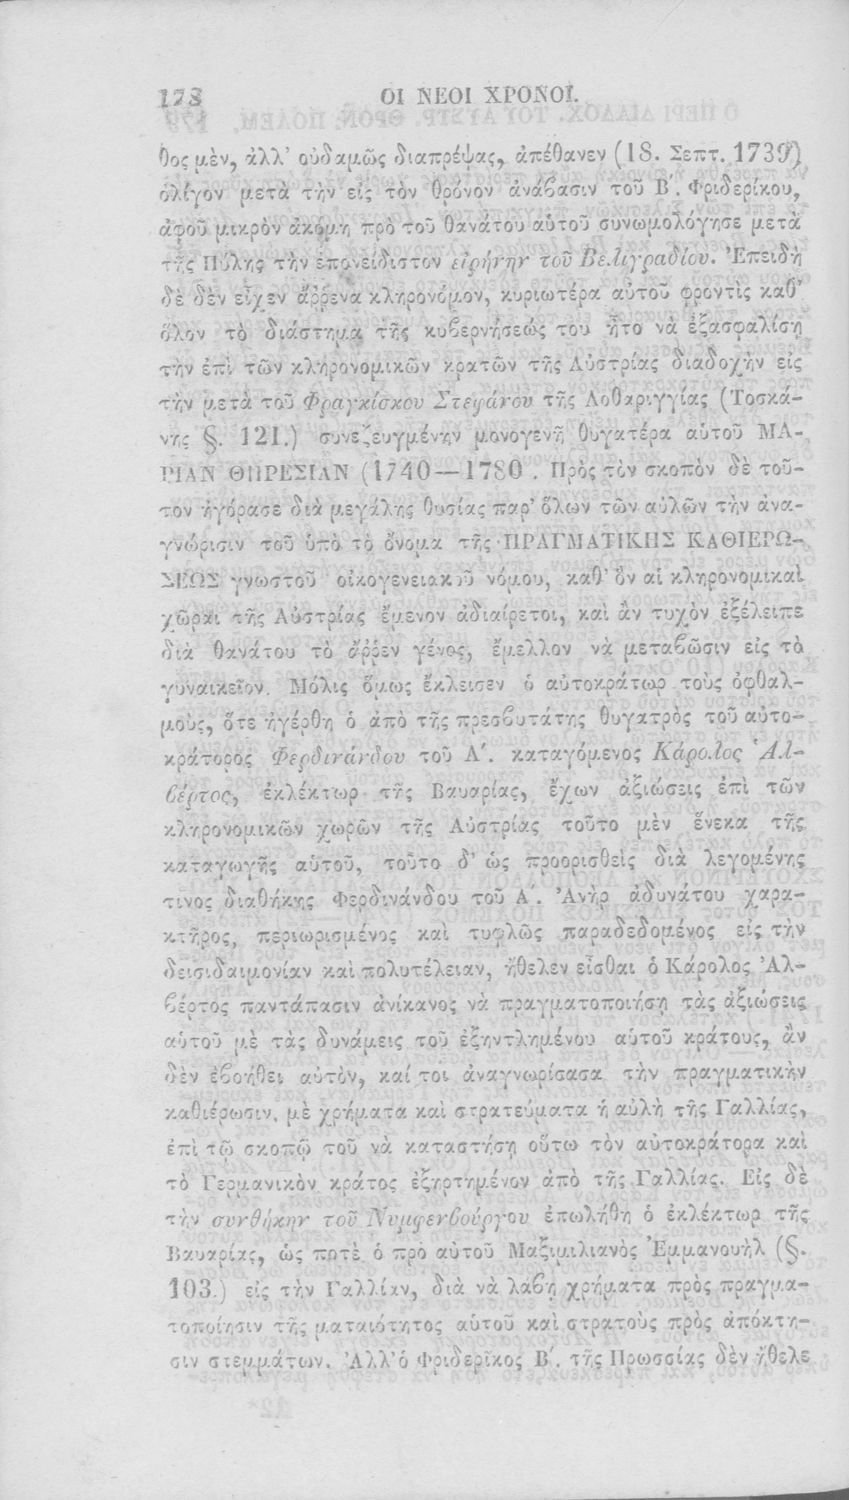 178 ΟΙ ΝΕΟΙ ΧΡΟΝΟΙ.
θος μὲν, ἀλλ' οὐδαμῶς διαπρέψας, ἀπέθανεν (18. Σεπτ. 1739)
ὀλίγον μετὰ τὴν εἰς τὸν θρόνον ἀνάβασιν τοῦ Β΄. Φριδερίκου,
ἀφοῦ μικρὸν ἀκόμη πρὸ τοῦ θανάτου αὑτοῦ συνωμολόγησε μετὰ
τῆς Πύλης τὴν ἐπονείδιστον εἰρήνην τοῦ Βελιγραδίου. Ἐπειδὴ
δὲ δὲν εἶχεν ἄῤῥενα κληρονόμον, κυριωτέρα αὐτοῦ φροντὶς καθ'
ὅλον τὸ διάστημα τῆς κυβερνήσεώς του ἦτο νὰ ἐξασφαλίσῃ
τὴν ἐπὶ τῶν κληρονομικῶν κρατῶν τῆς Αὐστρίας διαδοχὴν εἰς
τὴν μετὰ τοῦ Φραγκίσκου Στεφάνου τῆς Λοθαριγγίας (Τοσκά-
νης §. 121.) συνεζευγμένην μονογενῆ θυγατέρα αὑτοῦ ΜΑ-
ΡΙΑΝ ΘΗΡΕΣΙΑΝ (1740—1780. Πρὸς τὸν σκοπὸν δὲ τοῦ-
τον ἠγόρασε διὰ μεγάλης θυσίας παρ' ὅλων τῶν αὐλῶν τὴν ἀνα-
γνώρισιν τοῦ ὑπὸ τὸ ὄνομα τῆς ΠΡΑΓΜΑΤΙΚΗΣ ΚΑΘΙΕΡΩ-
ΣΕΩΣ γνωστοῦ οἰκογενειακοῦ νόμου, καθ' ὃν αἱ κληρονομικαὶ
χῶραι τῆς Αὐστρίας ἔμενον ἀδιαίρετοι, καὶ ἂν τυχὸν ἐξέλειπε
διὰ θανάτου τὸ ἄῤῥεν γένος, ἔμελλον νὰ μεταβῶσιν εἰς τὸ
γυναικεῖον. Μόλις ὅμως ἔκλεισεν ὁ αὐτοκράτωρ τοὺς ὀφθαλ-
μοὺς, ὅτε ἠγέρθη ὁ ἀπὸ τῆς πρεσβυτάτης θυγατρὸς τοῦ αὐτο-
κράτορος Φερδινάνδου τοῦ Α΄. καταγόμενος Κάρολος Ἀλ-
βέρτος, ἐκλέκτωρ τῆς Βαυαρίας, ἔχων ἀξιώσεις ἐπὶ τῶν
κληρονομικῶν χωρῶν τῆς Αὐστρίας τοῦτο μὲν ἕνεκα τῆς
καταγωγῆς αὑτοῦ, τοῦτο δ' ὡς προορισθεὶς διὰ λεγομένης
τινος διαθήκης Φερδινάνδου τοῦ Α΄. Ἀνὴρ ἀδυνάτου χαρα-
κτῆρος, περιωρισμένος καὶ τυφλῶς παραδεδομένος εἰς τὴν
δεισιδαιμονίαν καὶ πολυτέλειαν, ἤθελεν εἶσθαι ὁ Κάρολος Ἀλ-
βέρτος παντάπασιν ἀνίκανος νὰ πραγματοποιήσῃ τὰς ἀξιώσεις
αὑτοῦ μὲ τὰς δυνάμεις τοῦ ἐξηντλημένου αὑτοῦ κράτους, ἂν
δὲν ἐβοήθει αὐτὸν, καί τοι ἀναγνωρίσασα τὴν πραγματικὴν
καθιέρωσιν, μὲ χρήματα καὶ στρατεύματα ἡ αὐλὴ τῆς Γαλλίας,
ἐπὶ τῷ σκοπῷ τοῦ νὰ καταστήσῃ οὕτω τὸν αὐτοκράτορα καὶ
τὸ Γερμανικὸν κράτος ἐξηρτημένον ἀπὸ τῆς Γαλλίας. Εἰς δὲ
τὴν συνθήκην τοῦ Νυμφενβούργου ἐπωλήθη ὁ ἐκλέκτωρ τῆς
Βαυαρίας, ὡς ποτὲ ὁ πρὸ αὐτοῦ Μαξιμιλιανὸς Ἐμμανουὴλ (§.
103.) εἰς τὴν Γαλλίαν, διὰ νὰ λάβῃ χρήματα πρὸς πραγμα-
τοποίησιν τῆς ματαιότητος αὑτοῦ καὶ στρατοὺς πρὸς ἀπόκτη-
σιν στεμμάτων. Ἀλλ' ὁ Φριδερῖκος Β΄. τῆς Πρωσσίας δὲν ἤθελε